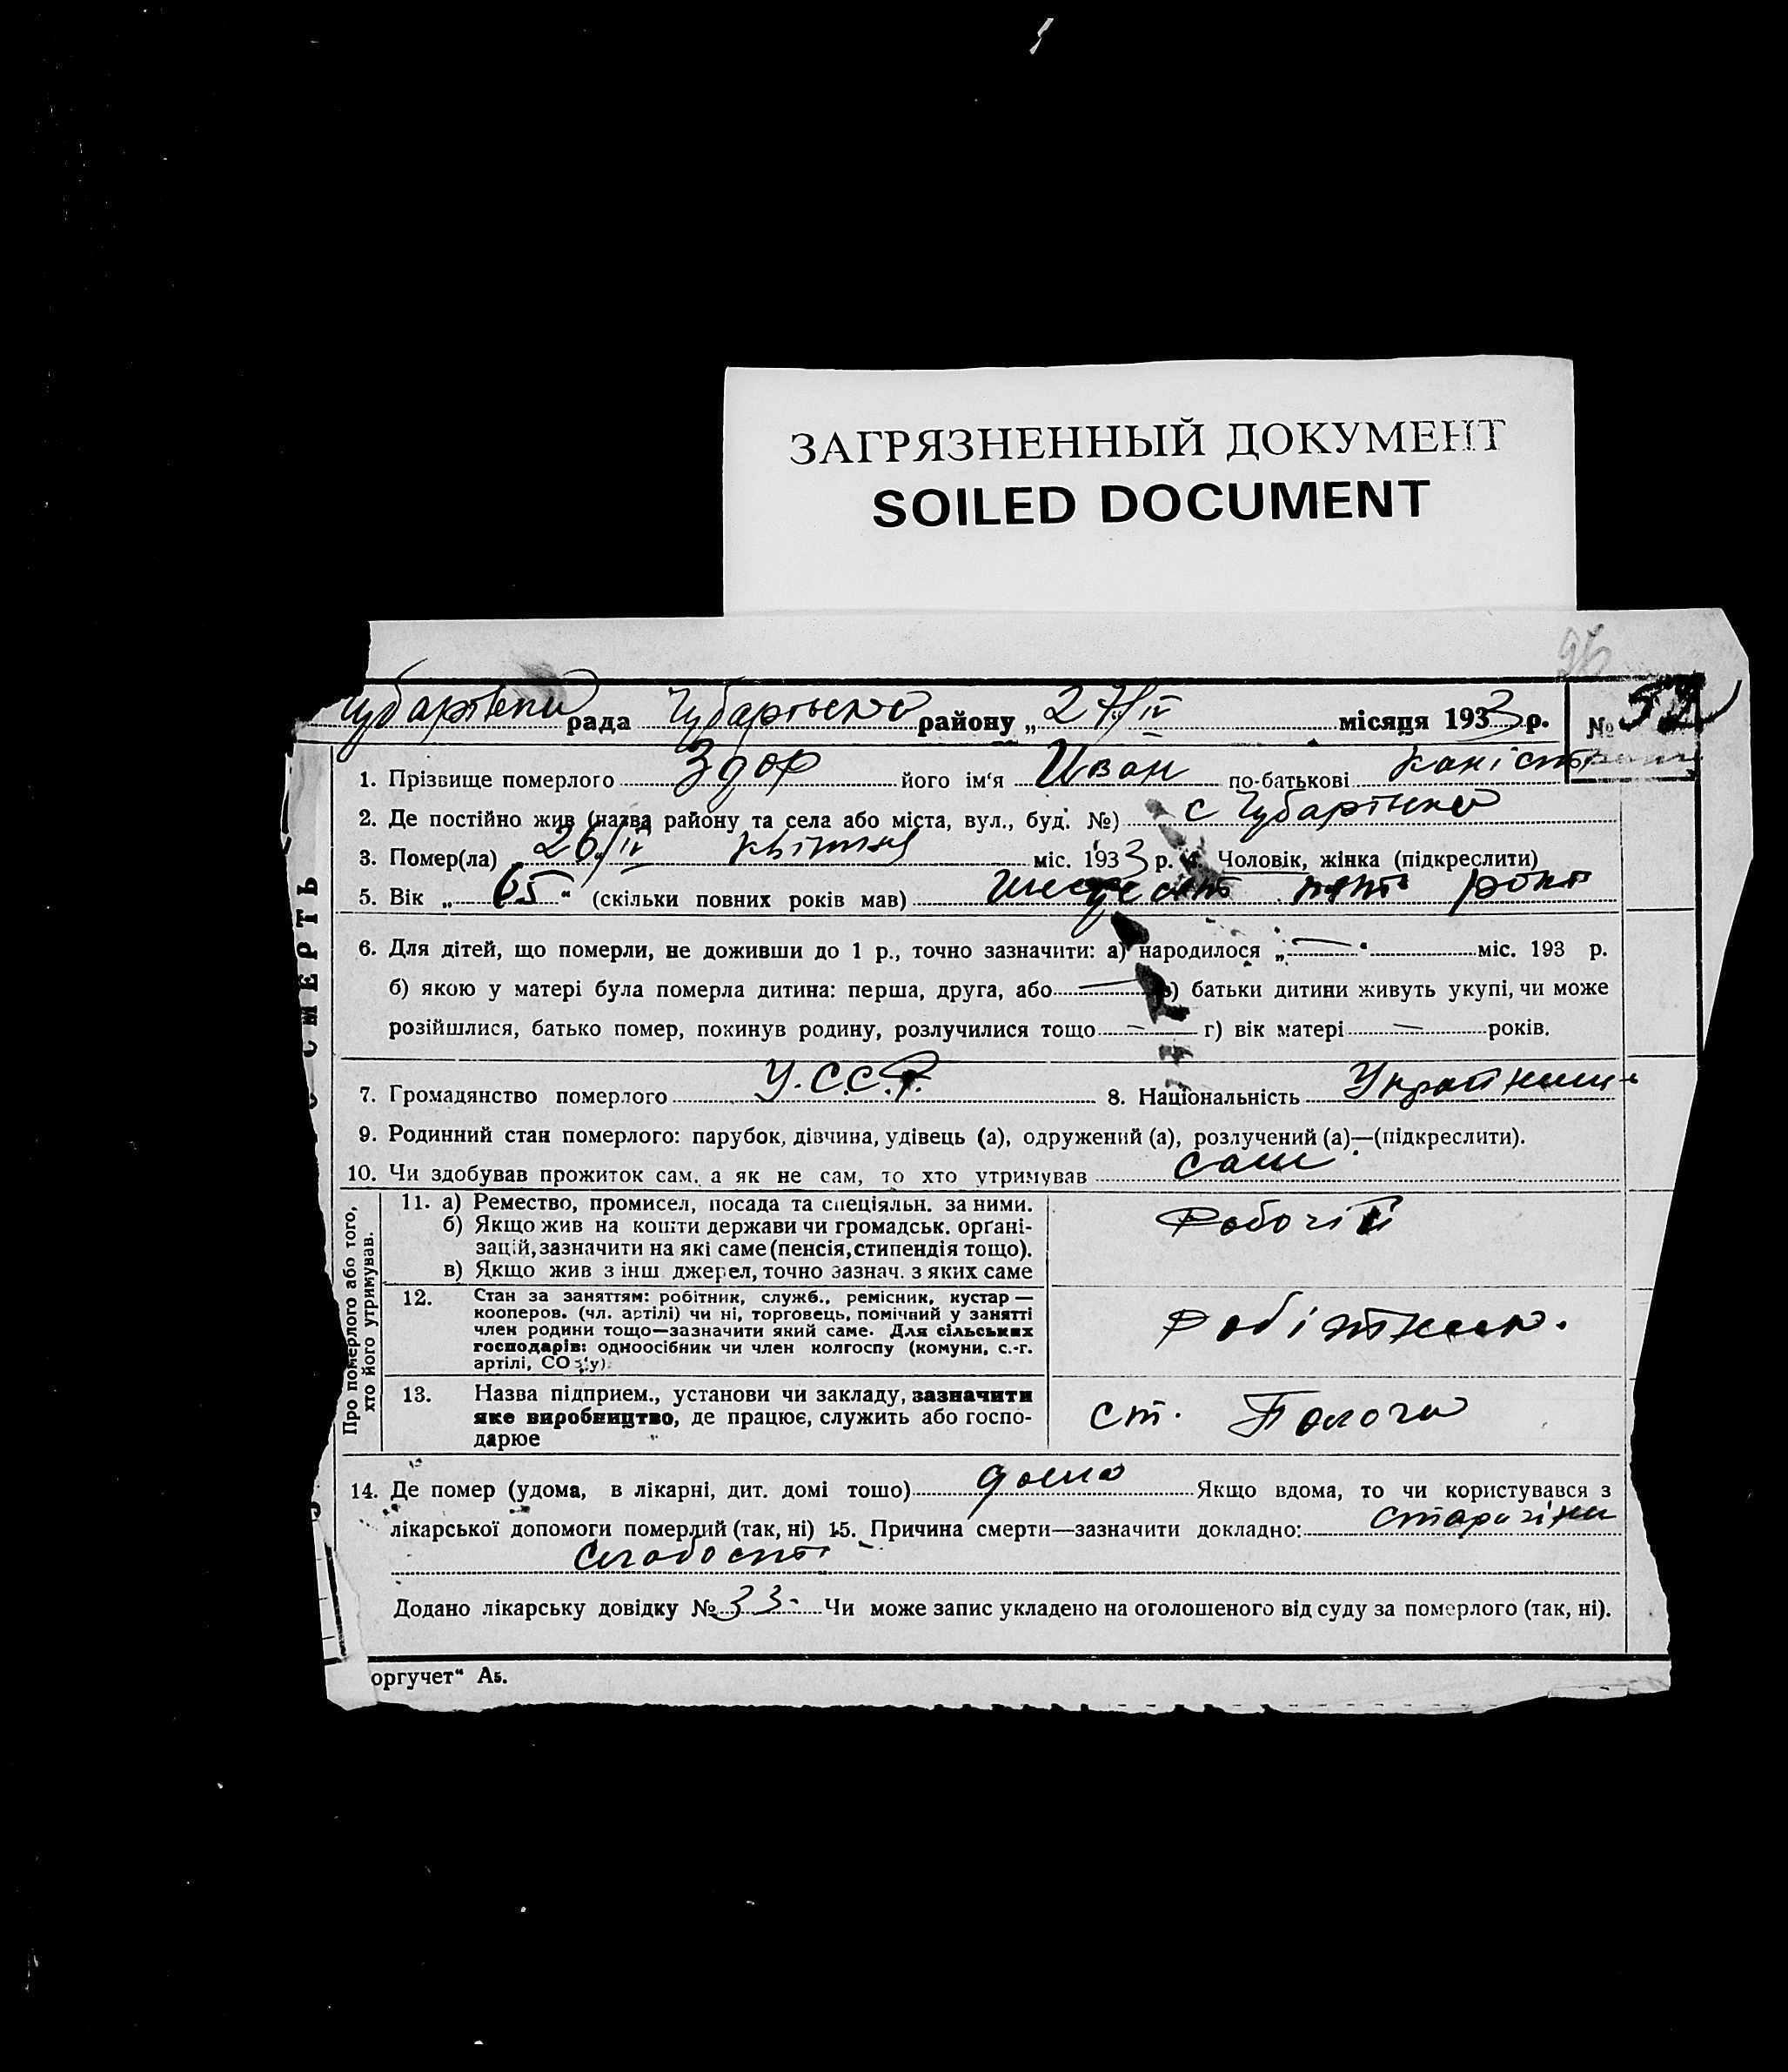 ЗАГРЯЗНЕННЫЙ ДОКУМЕНТ
SOILED DOCUMENT
96
рада район​у „27/IV місяця 1933 р. № 52
1. Прізвище померлого Здор його ім‘я Иван по-батькові
2. Де постійно жив (назва району та села або міста, вул., буд. №) с
3. Помер(ла) 26/IV квітня міс. 1933 р. 4. Чоловік, жінка (підкреслити)
5. Вік „65“ (скільки повних років мав)
6. Для дітей, що померли, не доживши до 1 р., точно зазначити: а) народилося „—“ міс. 193 р.
б) якою у матері була померла дитина: перша, друга, або — в) батьки дитини живуть укупі, чи може
розійшлися, батько помер, покинув родину, розлучилися тощо — г) вік матері — років.
7. Громадянство померлого У.С.С.Р. 8. Національність
9. Родинний стан померлого: парубок, дівчина, удівець (а), одружений (а), розлучений (а)—(підкреслити).
10. Чи здобував прожиток сам, а як не сам, то хто утримував сам
Про померлого або того,
хто його утримував.
11. а) Ремество, промисел, посада та спеціяльн. за ними.
б) Якщо жив на кошти держави чи громадськ. орґані-
зацій, зазначити на які саме (пенсія, стипендія тощо).
в) Якщо жив з інш джерел, точно зазнач. з яких саме
Робочій
12. Стан за заняттям: робітник, служб., ремісник, кустар —
кооперов. (чл. артілі) чи ні, торговець, помічний у занятті
член родини тощо—зазначити який саме. Для сільських
господарів: одноосібник чи член колгоспу (комуни, с.-г.
артілі, СОЗ‘у).
Робітник.
13. Назва підприєм., установи чи закладу, зазначити
яке виробництво, де працює, служить або госпо-
дарює
ст. Пологи
14. Де помер (удома, в лікарні, дит. домі тощо) дома Якщо вдома, то чи користувався з
лікарської допомоги померлий (так, ні) 15. Причина смерти—зазначити докладно:
Слабості
Додано лікарську довідку № 33 Чи може запис укладено на оголошеного від суду за померлого (так, ні).
оргучет“ А5.
СМЕРТЬ